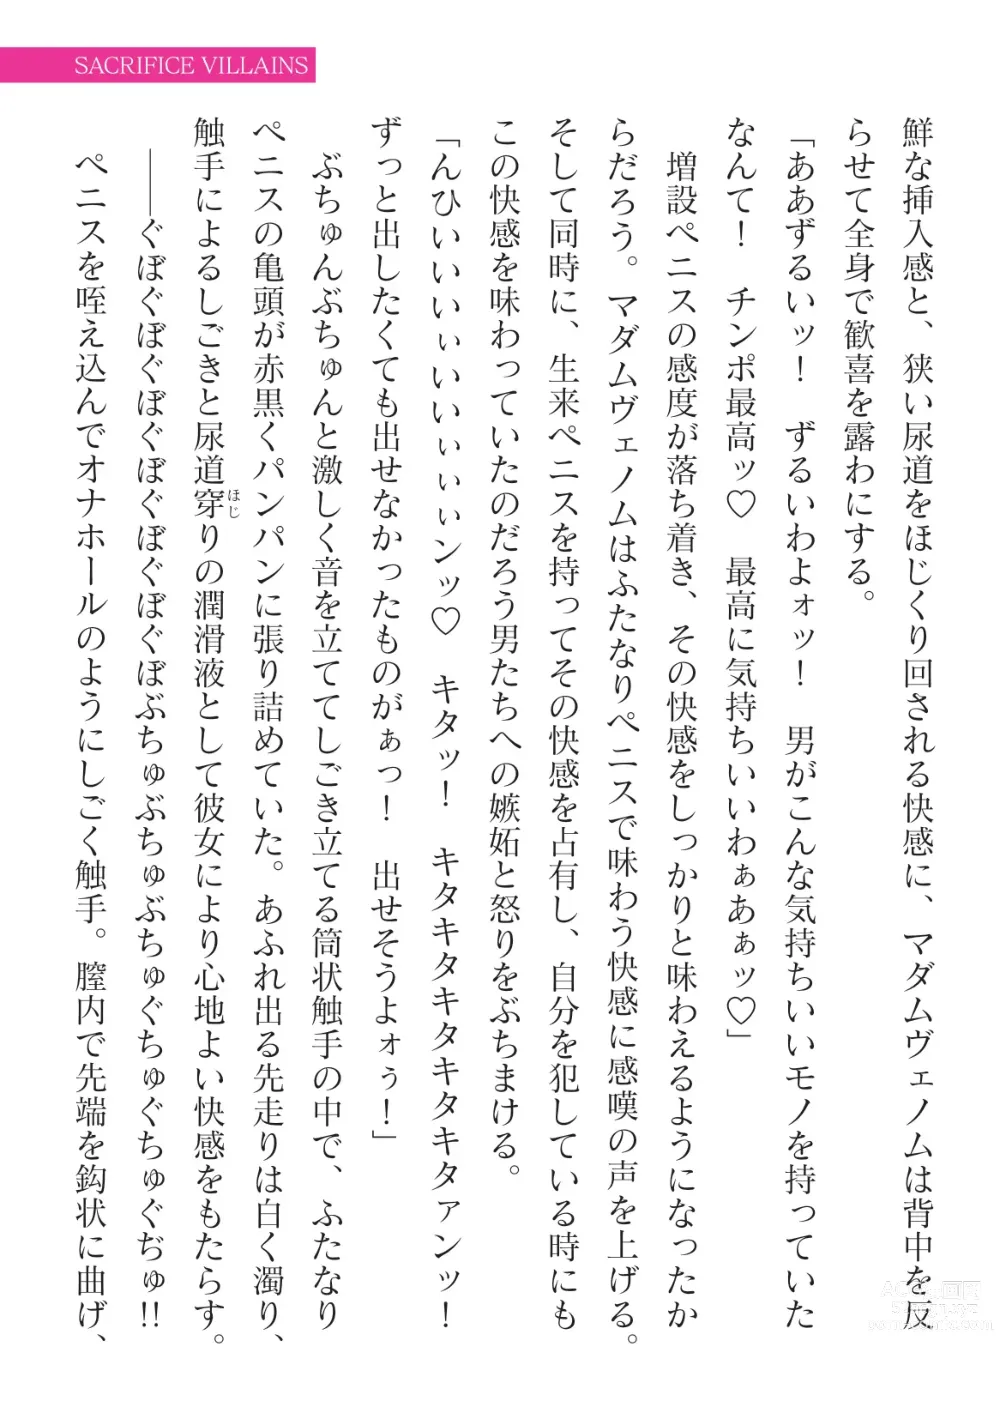 SACRIFICE VILLAINS
鮮な挿入感と、狭い尿道をほじくり回される快感に、マダムヴェノムは背中を反
らせて全身で歓喜を露わにする。
「ああずるいッ！　ずるいわよォッ！　男がこんな気持ちいいモノを持っていた
なんて！　チンポ最高ッ♡　最高に気持ちいいわぁあぁッ♡」
　増設ペニスの感度が落ち着き、その快感をしっかりと味わえるようになったか
らだろう。マダムヴェノムはふたなりペニスで味わう快感に感嘆の声を上げる。
そして同時に、生来ペニスを持ってその快感を占有し、自分を犯している時にも
この快感を味わっていたのだろう男たちへの嫉妬と怒りをぶちまける。
「んひいいいぃいいぃぃぃンッ♡　キタッ！　キタキタキタキタキタァンッ！
ずっと出したくても出せなかったものがぁっ！　出せそうよォぅ！」
　ぶちゅんぶちゅんと激しく音を立ててしごき立てる筒状触手の中で、ふたなり
ペニスの亀頭が赤黒くパンパンに張り詰めていた。あふれ出る先走りは白く濁り、
触手によるしごきと尿道穿ほじりの潤滑液として彼女により心地よい快感をもたらす。
　――ぐぼぐぼぐぼぐぼぐぼぐぼぐぼぶちゅぶちゅぶちゅぐちゅぐちゅぐぢゅ!!
　ペニスを咥え込んでオナホールのようにしごく触手。膣内で先端を鈎状に曲げ、